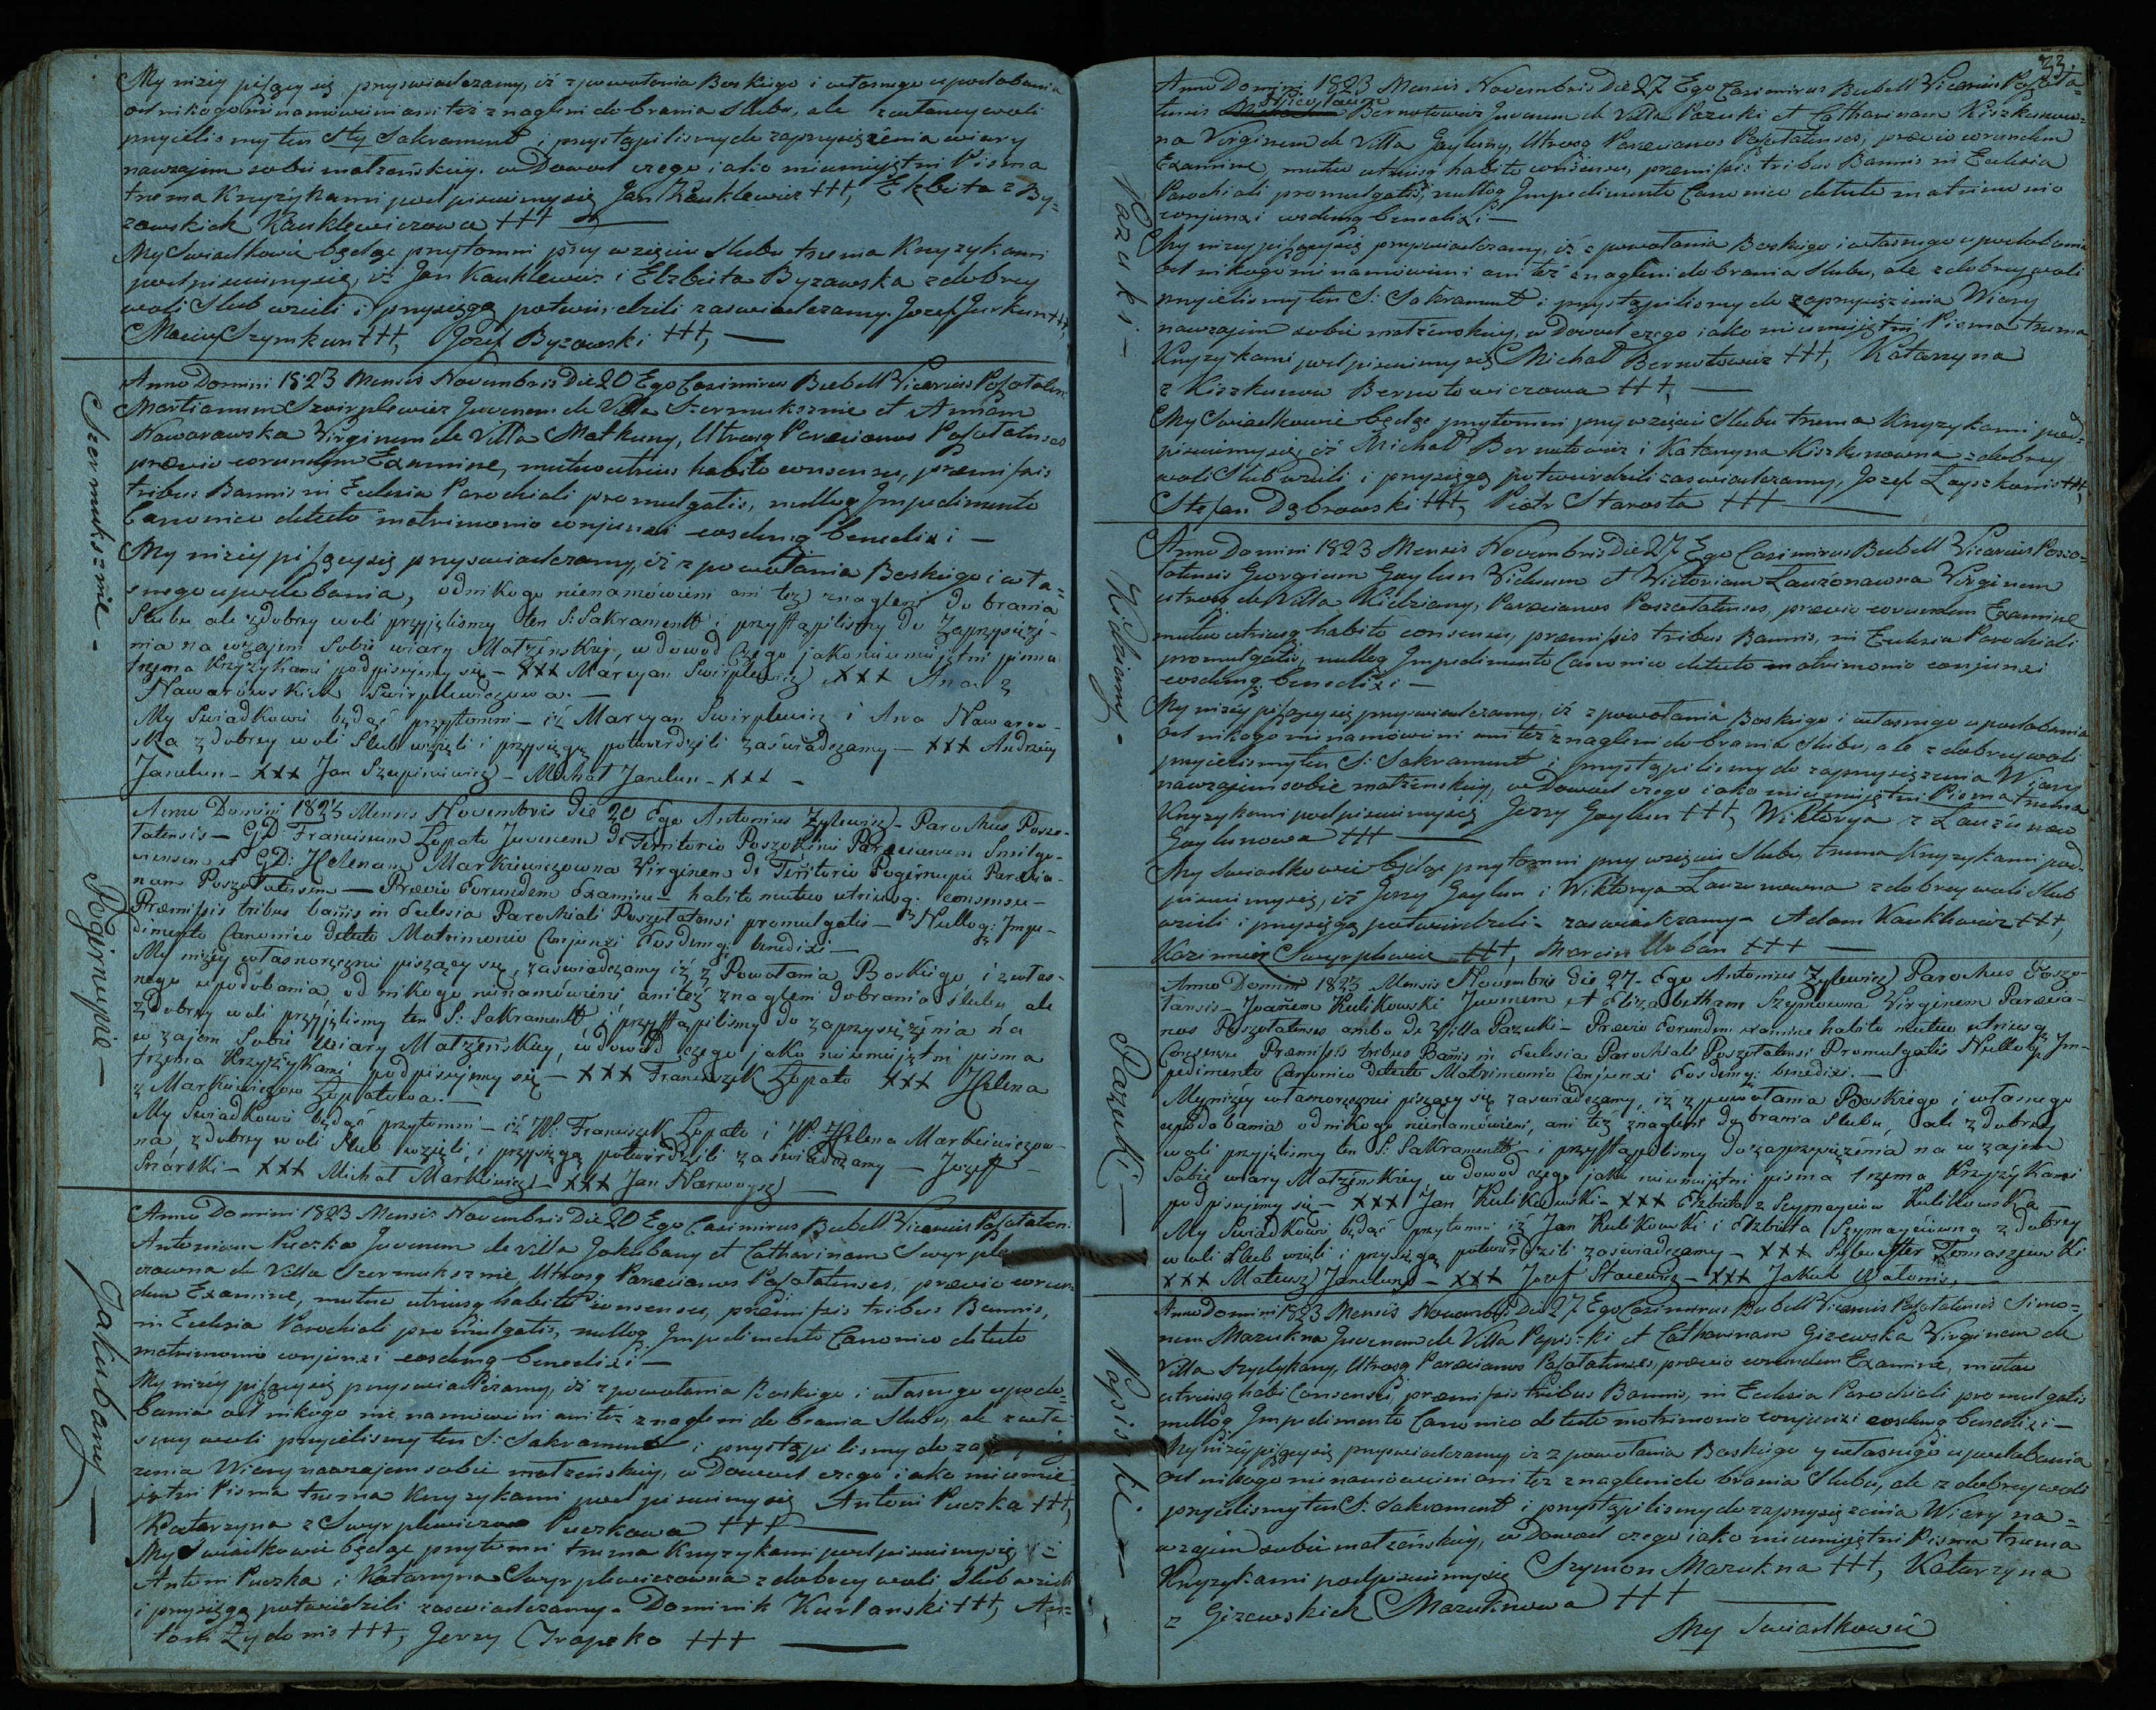 My niżey piszący się przyswiadczamy, iż z powołania Boskiego i własnego upodobania
od nikogo nie namówieni ani też znagleni do brania Slubu, ale z własney woli
przyielismy ten Sty Sakrament i przystąpilismy do zaprzysiężenia wiary
nawzajem sobie małzeńskiey. w Dowod czego iako nieumiejętni Pisma
trzema Krzyżykami podpisuiemy się Jan Kauklewicz +++, Elzbieta z By=
zowskich Kauklewiczowa +++
My Swiadkowie będąc przytomni przy wzięciu Slubu trzema Krzyżykami
podpisuiemy się, iż Jan Kauklewicz i Elzbieta Byzowska z dobrey
woli Slub wzieli i przysięgą potwierdzili zaswiadczamy. Jozef Jurkun +++,
Maciey Szymkun +++, Jozef Byzowski +++,
Szermuksznie -
Anno Domini 1823 Mensis Novembris Die 20 Ego Casimirus Bubell Vicarius Posołaten:
Martianum Szwirplewicz Juvenem de Villa Szermuksznie et Annam
Nawarowska Virginem de Villa Matkuny, Utrosq Parecianos Posołatenses
prævio eorumdem Examine, mutuo utrius habito consensu, præmissis
tribus Bannis in Eclesia Parochiali promulgatis, nulloq Impedimento
Canonico detecto matrimonio conjunxi eosdemq benedixi -
My niżey piszący się przyswiadczamy, iż z powołania Boskiego i wła=
snego upodobania, od nikogo nienamówieni ani też znagleni do brania
Slubu ale z dobrey woli przyjęlismy ten S: Sakrament i przystąpilismy do zaprzysięże-
nia na wzajem Sobie wiary Małżeńskiey, w dowod czego jako nieumiejętni pisma
trzema Krzyżykami podpisujemy się - XXX Marcyan Swirplewicz XXX Ana z
Nawarowskich Swirplewiczowa. -
My Swiadkowie będąc przytomni - iż Marcyan Swirplewicz i Ana Nawarow-
ska z dobrey woli Slub wzięli i przysięgą potwierdzili zaświadczamy - XXX Andrzey
Janelun - XXX Jan Szupieniewicz - Michał Janelun - XXX -
Pogirnupie -
Anno Domini 1823 Mensis Novembris die 20 Ego Antonius Zylewicz - Parochus Poszo-
łatensis - GD Franciscum Łopato Juvenem de Territorio Poszokśni Parecianum Smilgi-
niensem et GD: Helenam Markiewiczowna Virginem de Teritorio Pogirnupie Parecia-
nam Poszołatensem - Prævio Eorundem Examine - habito mutuo utriusq: consensu -
Præmissis tribus bañis in Eclesia Parochiali Poszołatensi promulgatis - Nulloq: Impe-
dimento Canonico detecto Matrimonio Conjunxi Eosdemq: benedixi -
My niżey własnoręcznie piszący się, zaswiadczamy iż z Powołania Boskiego i włas-
nego upodobania, od nikogo nienamówieni, ani też znagleni dobrania slubu, ale
z dobrey woli przyjęlismy ten S: Sakrament, i przystąpilismy do zaprzysiężenia na
wzajem Sobie wiary Małżeńskiey, w dowod czego jako nieumiejętni pisma
trzema Krzyżykami podpisujemy się - XXX Franciszek Łopato XXX Helena
z Markiewiczow Łopatowa. -
My Swiadkowie będąc przytomni - iż W: Franciszek Łopato i W: Helena Markiewiczow-
na, z dobrey woli Slub wzięli, i przysięgą potwierdzili zaświadczamy - Jozef -
Snarski - XXX Michał Markiewicz - XXX Jan Narwoysz -
Jakubany -
Anno Domini 1823 Mensis Novembris Die 20 Ego Casimirus Bubell Vicarius Posołaten:
Antonium Puczko Juvenem de villa Jakubany et Catharinam Swyrple
czowna de Villa Szermuksznie, Utrosq Parecianos Posołatenses, prævio eorum
dem Examine, mutuo utriusq habito consensu, præmissis tribus Bannis,
in Eclesia Parochiali promulgatis, nulloq Impedimento Canonico detecto
matrimonio conjunxi eosdemq benedixi -
My niżey piszący się przyswiadczamy, iż z powołania Boskiego i własnego upodo=
bania od nikogo nie namówieni ani też znagleni do brania Slubu, ale z wła=
sney woli przyielismy ten S: Sakrament i przystąpilismy do zaprzysię
żenia Wiary nawzajem sobie małzeńskiey, w Dowod czego iako nieumie
iętni Pisma trzema Krzyżykami podpisuiemy się Antoni Puczka +++,
Katarzyna z Swyrplewiczow Puczkowa +++
My Swiadkowie będąc przytomni trzema Krzyżykami podpisuiemy się iż
Antoni Puczka i Katarzyna Swyrplewiczowna z dobrey woli Slub wzieli
i przysięgą potwierdzili zaswiadczamy. Dominik Kurlanski +++, An=
toni Zydonis +++, Jerzy Czapsko +++
23.
Pazuki -
Anno Domini 1823 Mensis Novembris Die 27 Ego Casimirus Bubell Vicarius Posołata=
tensis Bernotowicz Juvenem de Villa Pazuki et Catharinam Kiszkunow=
na Virginem de Villa Gayluny, Utrosq Parecianos Posołatenses, prævio eorumdem
Examine, mutuo utriusq habito consensu, præmissis tribus Bannis in Eclesia
Parochiali promulgatis, nulloq Impedimento Canonico detecto matrimonio
conjunxi eosdemq benedixi -
My niżey piszący się przyswiadczamy, iż z powołania Boskiego i własnego upodobania
od nikogo nie namówieni ani też znagleni do brania Slubu, ale z dobrey woli
przyielismy ten S: Sakrament i przystąpilismy do zaprzysiężenia Wiary
nawzajem sobie małżenskiey, w Dowod czego iako nieumiejętni Pisma trzema
Krzyżykami podpisuiemy się Michał Bernotowicz +++, Katarzyna
z Kiszkunow Bernotowiczowa +++,
My Swiadkowie będąc przytomni przy wzięciu Slubu trzema Krzyżykami pod=
pisuiemy się, iż Michał Bernotowicz i Katarzyna Kiszkunowna z dobrey
woli Slub wzieli i przysięgą potwierdzili zaswiadczamy, Jozef Łayszkonis +++,
Stefan Dąbrowski +++, Piotr Starosta +++
Kidziany -
Anno Domini 1823 Mensis Novembris Die 27 Ego Casimirus Bubell Vicarius Poszo=
łatensis Georgium Gaylun Viduum et Victoriam Lauzonowna Virginem
utrosq de Villa Kidziany, Parecianos Poszołatenses, prævio eorumdem Examine
mutuo utriusq habito consensu, præmissis tribus Bannis, in Eclesia Parochiali
promulgatis, nulloq Impedimento Canonico detecto matrimonio conjunxi
eosdemq benedixi -
My niżey piszący się przyswiadczamy, iż z powołania Boskiego i własnego upodobania
od nikogo nie namówieni ani też znagleni do brania Slubu, ale z dobrey woli
przyielismy ten S: Sakrament i przystąpilismy do zaprzysiężenia Wiary
nawzajem sobie małżenskiey, w Dowod czego iako nieumiejętni Pisma trzema
Krzyżykami podpisuiemy się Jerzy Gaylun +++, Wiktorya z Lauzunow
Gaylunowa +++
My Swiadkowie będąc przytomni przy wzięciu Slubu, trzema Krzyżykami pod=
pisuiemy się, iż Jerzy Gaylun i Wiktorya Lauzunowna z dobrey woli Slub
wzieli i przysięgą potwierdzili - zaswiadczamy - Adam Kauklewicz +++,
Kazimierz Swyrplewicz +++, Marcin Urban +++ -
Pazuki -
Anno Domini 1823 Mensis Novembris die 27. Ego Antonius Zylewicz Parochus Poszo-
łatensis - Joañem Kulikowski Juvenem et Elizabetham Szymowna Virginem Parecia-
nos Poszołatenses ambo de Villa Pazuki - Prævio Eorundem examine habito mutuo utriusq
Consensu Præmissis tribus Bañis in Eclesia Parochiali Poszołatensi Promulgatis Nulloq Im-
pedimento Canonico detecto Matrimonio Conjunxi Eosdemq: benedixi. -
My niżey własnoręcznie piszący się zaswiadczamy, iż z powołania Boskiego i własnego
upodobania od nikogo nienamówieni, ani też znagleni do brania Slubu, ale z dobrey
woli przyjęlismy ten S: Sakrament - i przystąpilismy do zaprzysiężenia na wzajem
Sobie wiary Małżeńskiey, w dowod czego jako nieumiejętni pisma trzema Krzyżykami
podpisujemy się - XXX Jan Kulikowski - XXX Elzbieta z Szymayciow Kulikowska
My Swiadkowie będąc przytomni iż Jan Kulikowski i Elzbieta Szymayciowna z dobrey
woli Slub wzieli i przysięgą potwierdzili zaswiadczamy - XXX Sylwester Tomaszewski
XXX Mateusz Janelun - XXX Jozef Stacewicz - XXX Jakub Walonis.
Papiszki -
Anno Domini 1823 Mensis Novembris Die 27 Ego Casimirus Bubell Vicarius Posołatensis Simo=
nem Mazukna Juvenem de Villa Papiszki et Catharinam Gizewska Virginem de
Villa Szydykany, Utrosq Parecianos Posołatenses, prævio eorumdem Examine, mutuo
utriusq habi Consensu, præmissis tribus Bannis, in Eclesia Parochiali promulgatis
nulloq Impedimento Canonico detecto matrimonio conjunxi eosdemq benedixi -
My niżey piszący się przyswiadczamy iż z powołania Boskiego y własnego upodobania
od nikogo nie namówieni ani też znagleni do brania Slubu, ale z dobrey woli
przyielismy ten S: Sakrament i przystąpilismy do zaprzysiężenia Wiary na=
wzajem sobie małzeńskiey, w Dowod czego iako nieumiejętni Pisma trzema
Krzyżykami podpisuiemy się Szymon Mazukna +++, Katarzyna
z Gizewskich Mazuknowa +++
My Swiadkowie